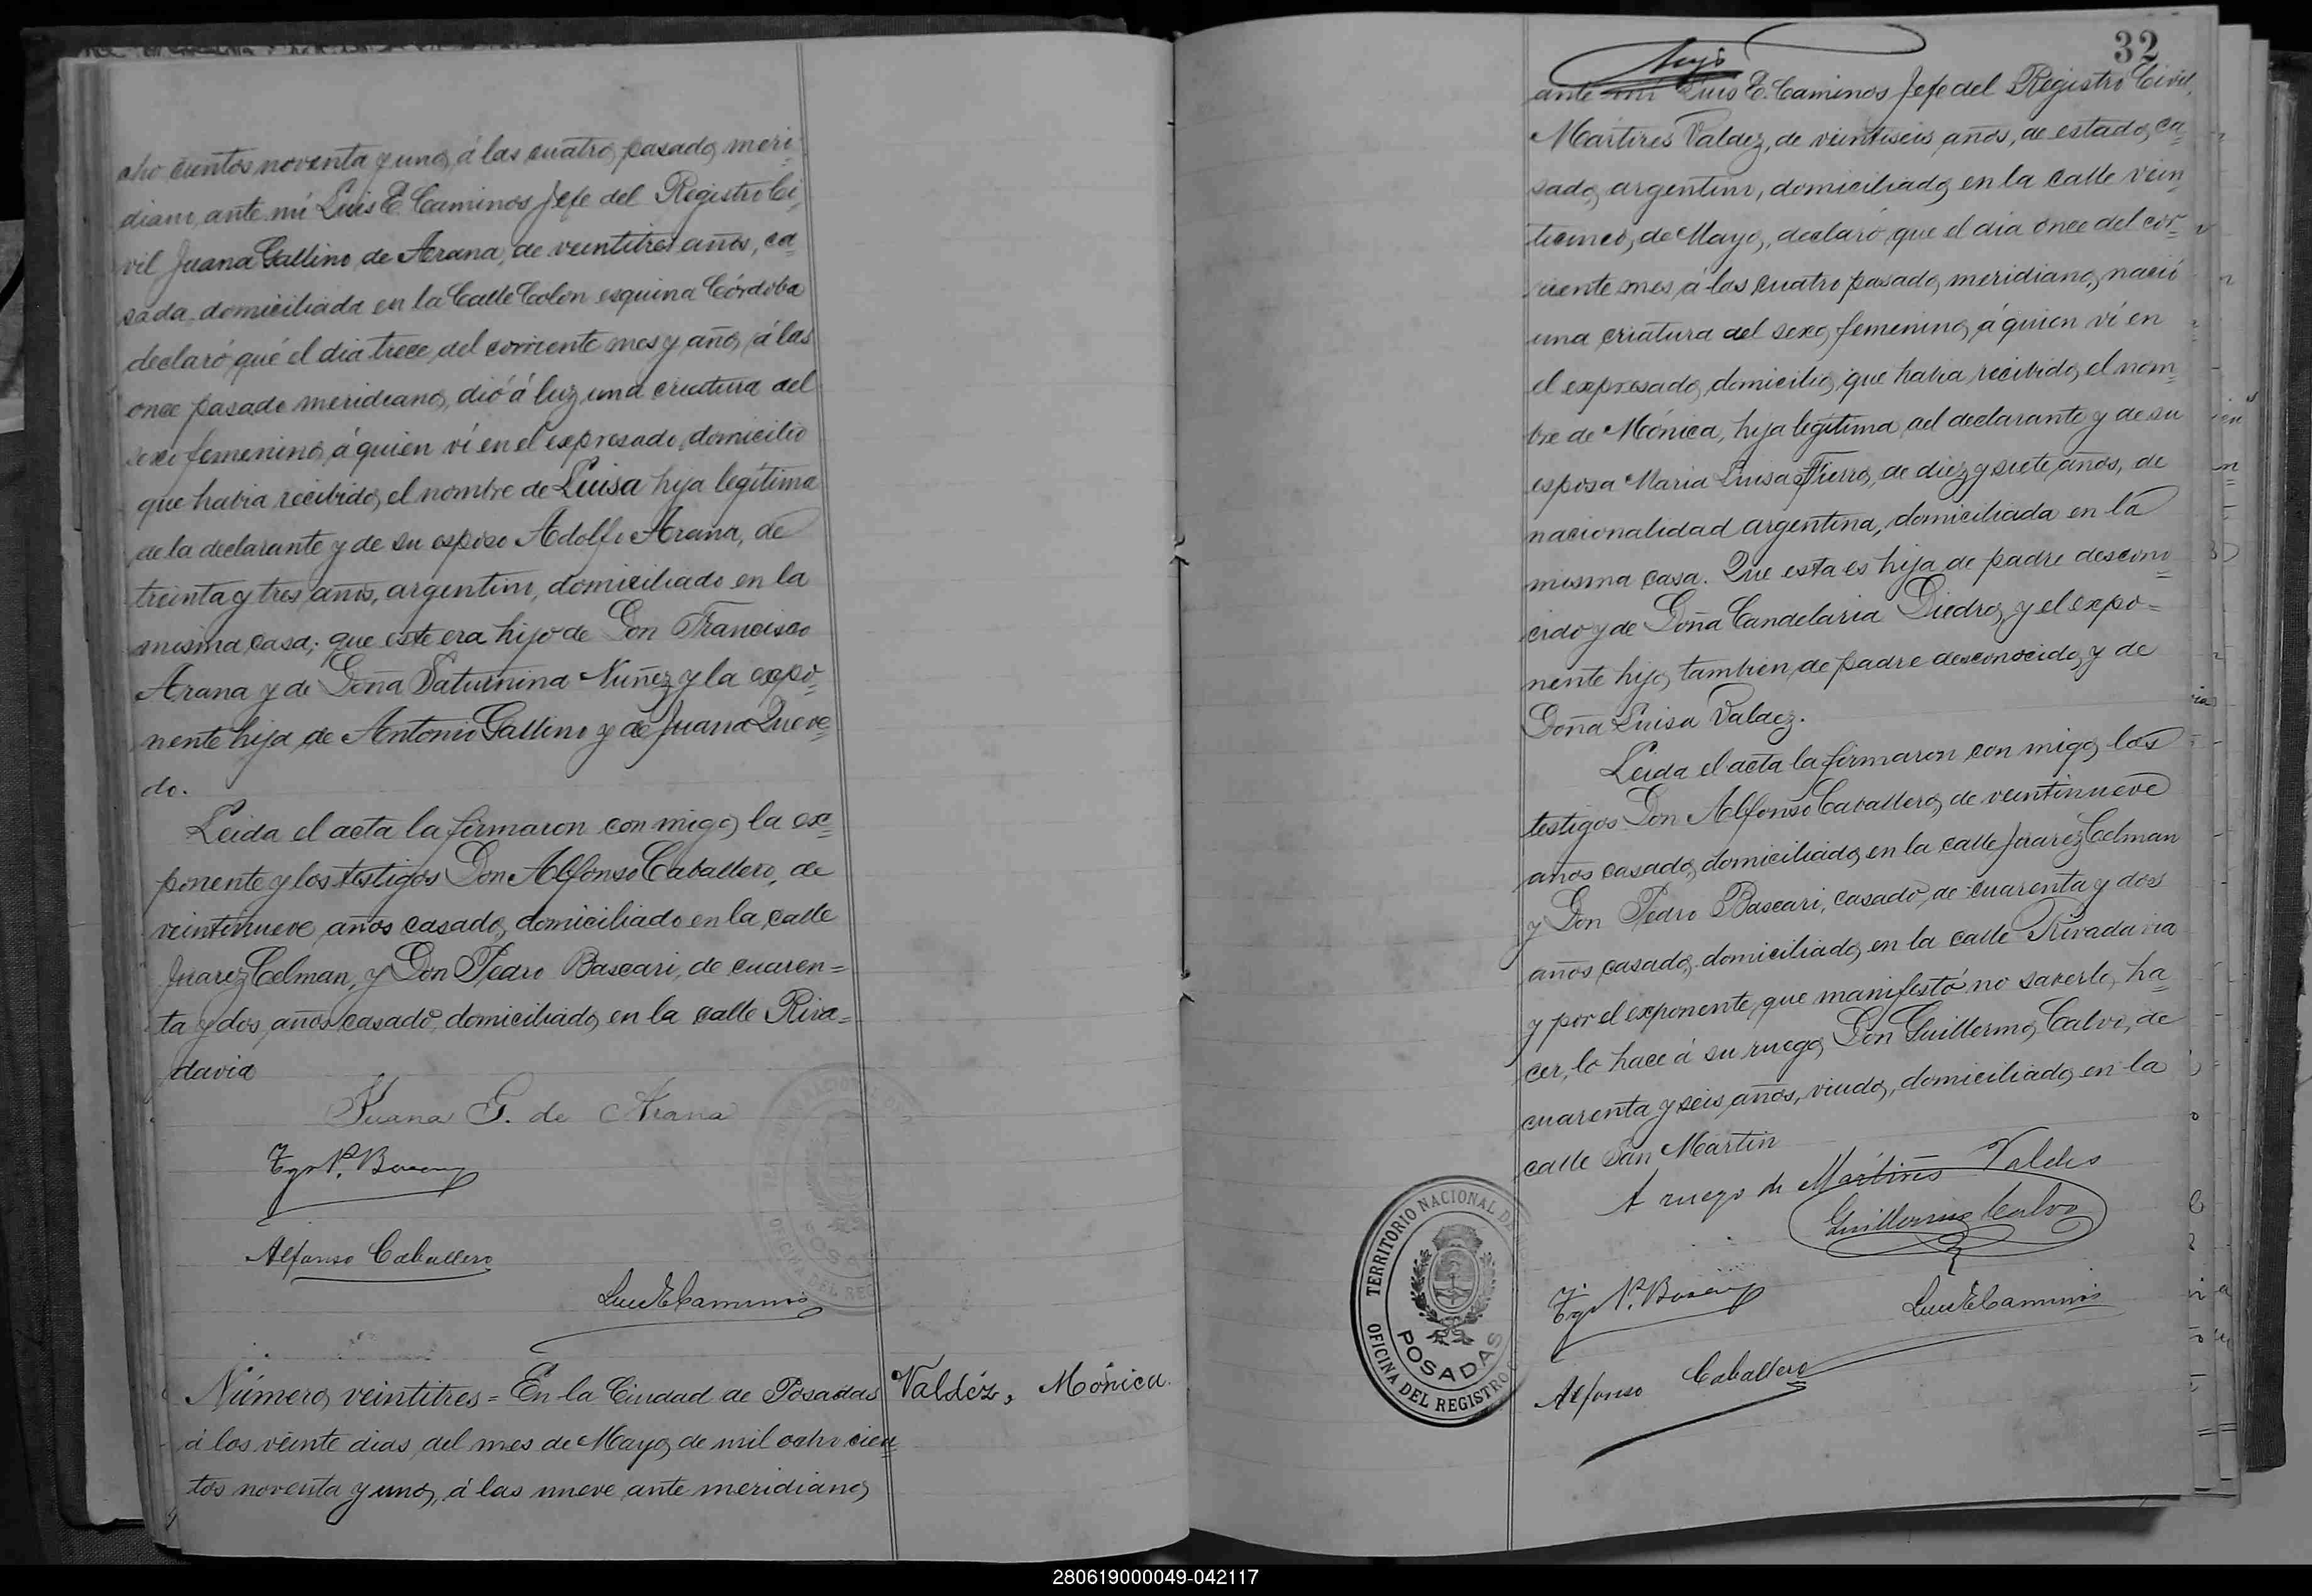 cho cientos noventa y uno, á las cuatro pasado meri-
diano, ante mí Luis E. Caminos Jefe del Registro Ci-
vil Juana Gallino de Arana, de veintitres años, ca-
sada, domiciliada en la Calle Colon esquina Córdoba
declaró qué el dia trece del corriente mes y año, á las
once pasado meridiano, dió á luz una criatura del
sexo femenino, á quien ví en el expresado domicilio
que habia recibido el nombre de Luisa hija legítima
de la declarante y de su esposo Adolfo Arana, de
treinta y tres años, argentino, domiciliado en la
misma casa; que este era hijo de Don Francisco
Arana y de Doña Saturnina Nuñez y la expo-
nente hija de Antonio Gallino y de Juana Queve-
do.
Leida el acta la firmaron con migo, la ex-
ponente y los testigos Don Alfonso Caballero, de
veintinueve años casado, domiciliado en la calle
Juarez Celman, y Don Pedro Bascari, de cuaren=
ta y dos años casado, domiciliado en la calle Riva=
davia
Juana G. de Arana
Alfonso Caballero
Luis E Caminos
Número veintitres = En la Ciudad de Posadas
á los veinte dias del mes de Mayo de mil ocho cien-
tos noventa y uno, á las nueve ante meridiano,
Valdéz, Mónica.
32
ante mí Luis E. Caminos Jefe del Registro Civil,
Mártires Valdez, de veintiseis años, de estado ca-
sado, argentino, domiciliado en la calle vein-
ticinco de Mayo, declaró que el dia once del cor-
riente mes á las cuatro pasado meridiano, nació
una criatura del sexo femenino, á quien ví en
el expresado domicilio, que habia recibido el nom-
bre de Mónica, hija legítima del declarante y de su
esposa Maria Luisa Fierro, de diez y siete años, de
nacionalidad argentina, domiciliada en la
misma casa. Que esta es hija de padre descono-
cido y de Doña Candelaria Diedro, y el expo=
nente hijo tambien de padre desconocido y de
Doña Luisa Valdez.
Leida el acta la firmaron con migo, los
testigos Don Alfonso Caballero, de veintinueve
años casado, domiciliado en la calle Juarez Celman
y Don Pedro Bascari, casado, de cuarenta y dos
años casado, domiciliado en la calle Rivadavia
y por el exponente, que manifestó no saverlo ha-
cer, lo hace á su ruego, Don Guillermo Calvo, de
cuarenta y seis años, viudo, domiciliado en la
calle San Martin
A ruego de Mártires Valdes
Guillermo Calvo
Luis E Caminos
Alfonso Caballero
TERRITORIO NACIONAL DE
POSADAS
OFICINA DEL REGISTRO
280619000049-042117